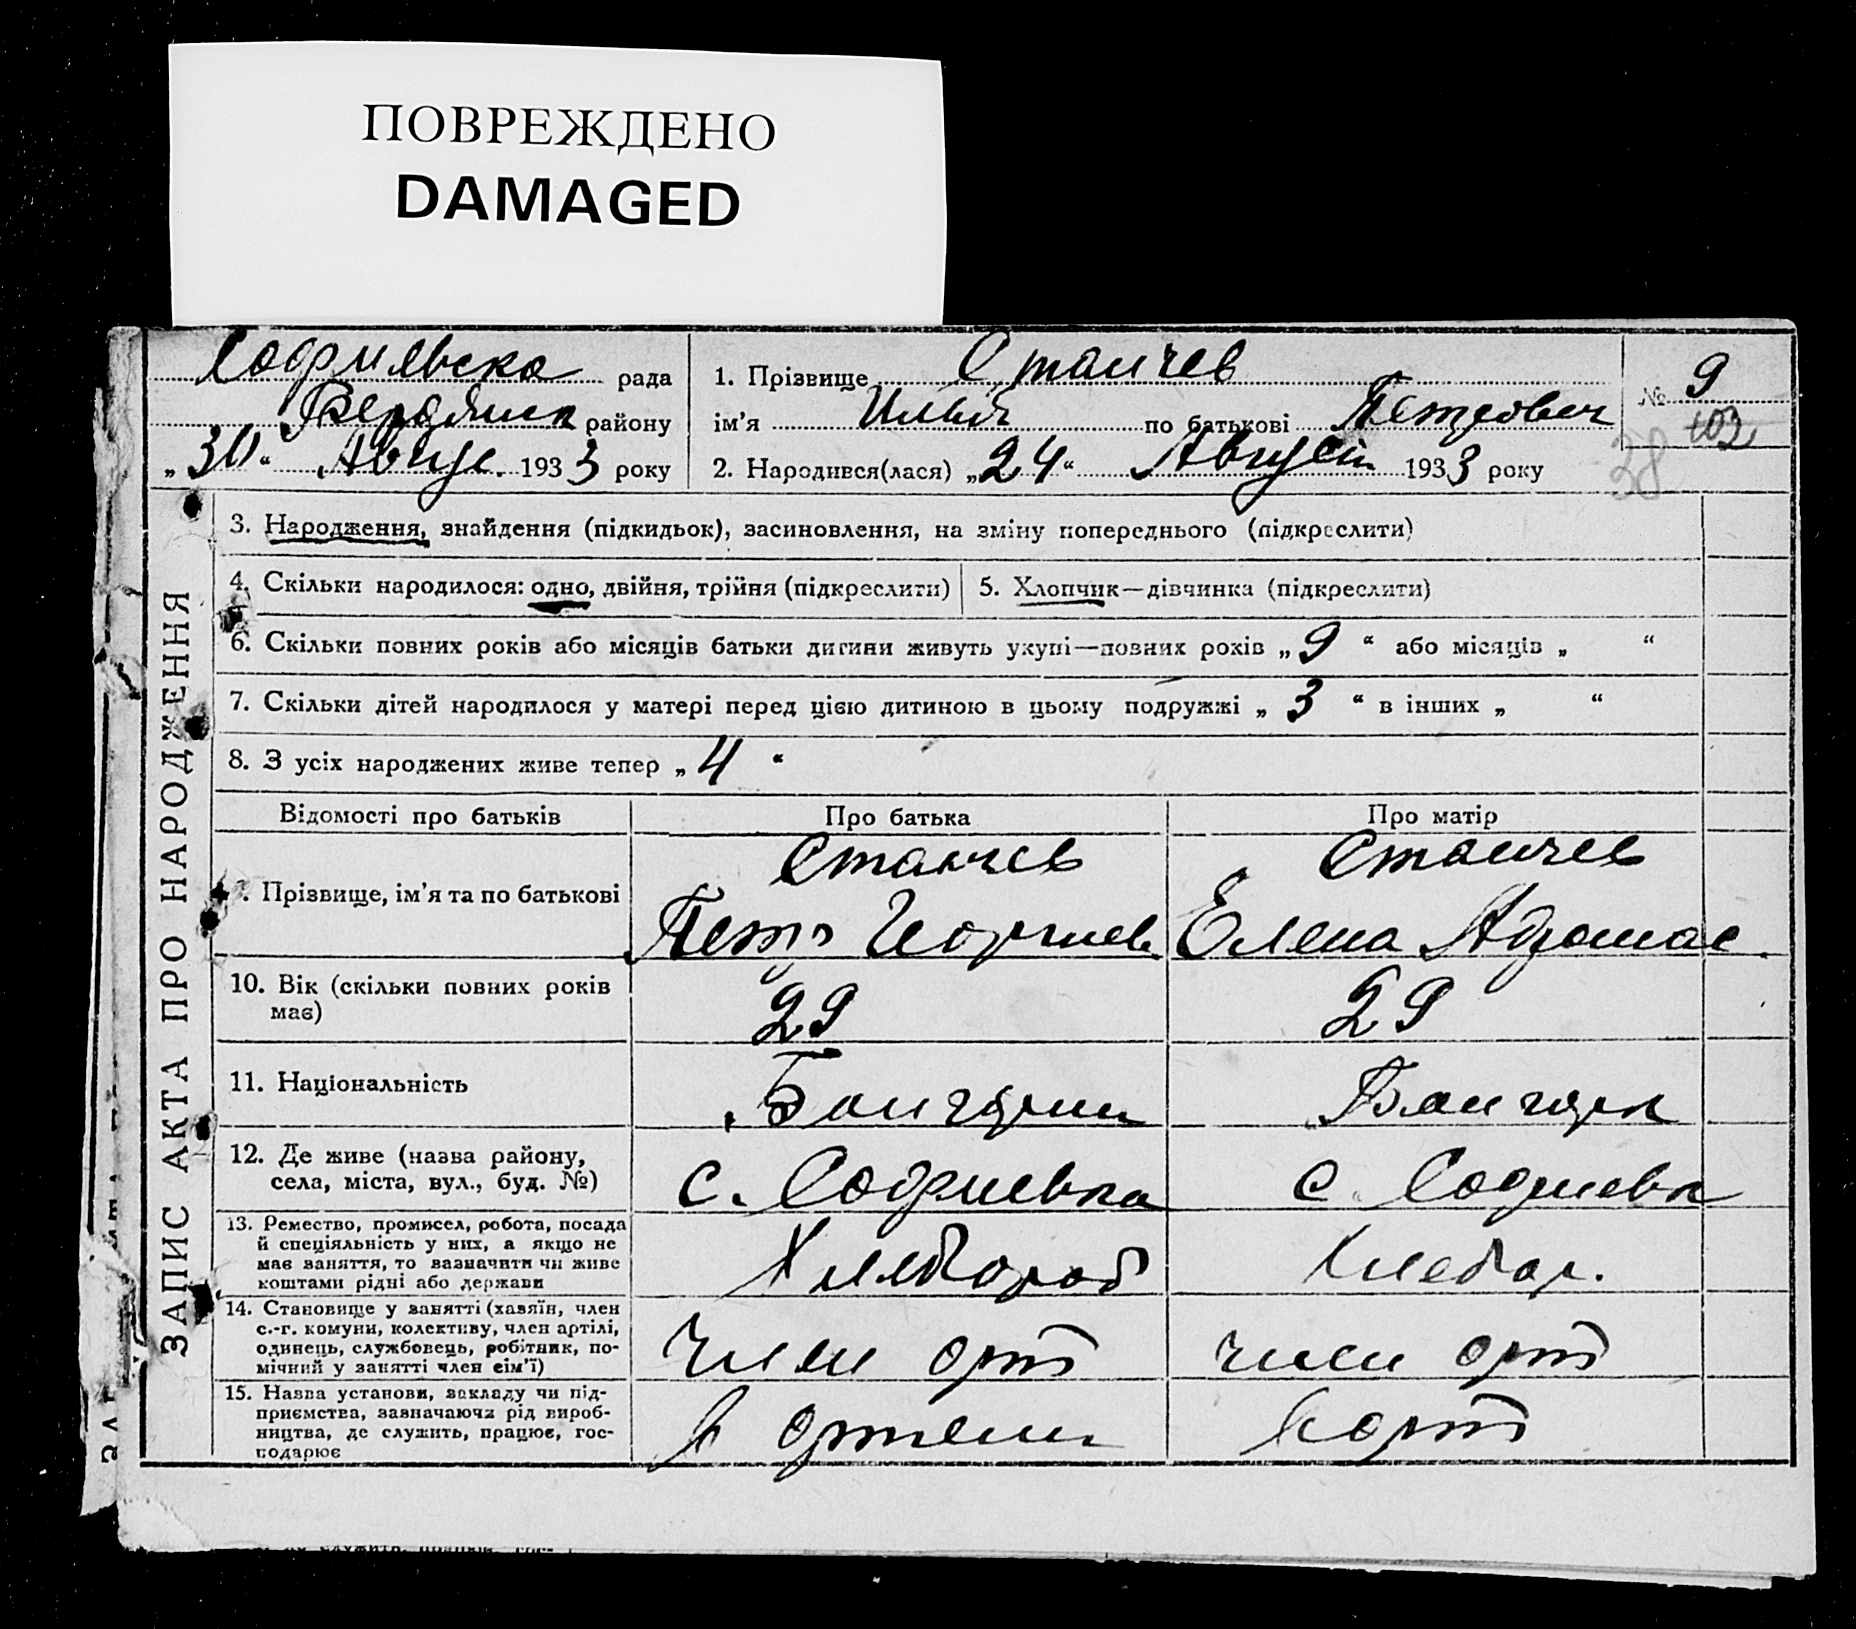 ПОВРЕЖДЕНО
DAMAGED
рада
района
„30“ Авгус. 1933 року
1. Прізвище Станчев
ім'я Илья по батькові Петрович
2. Народився(лася) „24“ Август 1933 року
№ 9
103
38
ЗАПИС АКТА ПРО НАРОДЖЕННЯ
3. Народження, знайдення (підкидьок), засиновлення, на зміну попереднього (підкреслити)
4. Скільки народилося: одно, двійня, трійня (підкреслити)
5. Хлопчик—дівчинка (підкреслити)
6. Скільки повних років або місяців батьки дитини живуть укупі—повних років „9“ або місяців „ “
7. Скільки дітей народилося у матері перед цією дитиною в цьому подружжі „3“ в інших „ “
8. З усіх народжених живе тепер „4“
Відомості про батьків
Про батька
Про матір
9. Прізвище, ім'я та по батькові
Станчев
Петр Георгиев
Станчев
Елена
10. Вік (скільки повних років
має)
29
29
11. Національність
Болгарин
12. Де живе (назва району,
села, міста, вул., буд. №)
с. Софиевка
с. Софиевк
13. Ремество, промисел, робота, посада
й спеціяльність у них, а якщо не
має заняття, то зазначити чи живе
коштами рідні або держави
Хлебороб
Хлебор.
14. Становище у занятті (хазяїн, член
с.-г. комуни, колективу, член артілі,
одинець, службовець, робітник, по-
мічний у занятті член сім'ї)
член арт
член арт
15. Назва установи, закладу чи під-
приємства, зазначаючи рід вироб-
ництва, де служить, працює, гос-
подарює
в артели
в арт